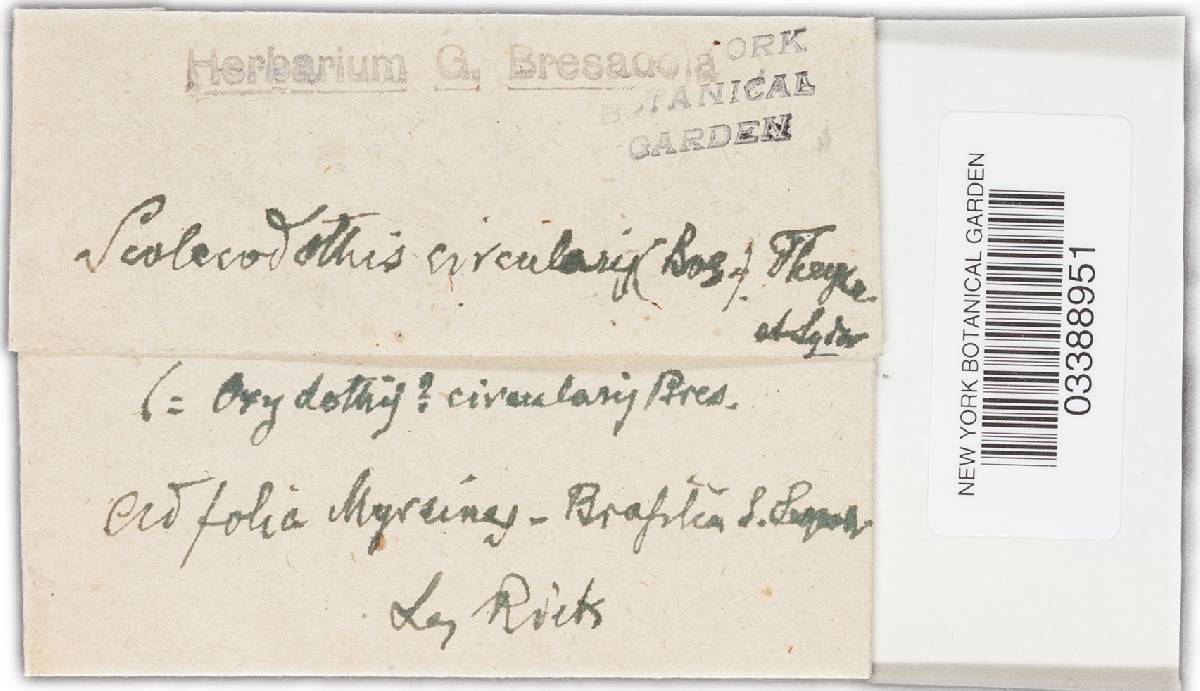 Herbarium G. Bresadola
ORK
BOTANICAL
GARDEN
Scolecodothis circularis (Bres.) Theyss.
et Sydow
(= Oxydothis? circularis Bres.
ad folia Myrsines - Brasilia S.
Leg Rick
NEW YORK BOTANICAL GARDEN
03388951